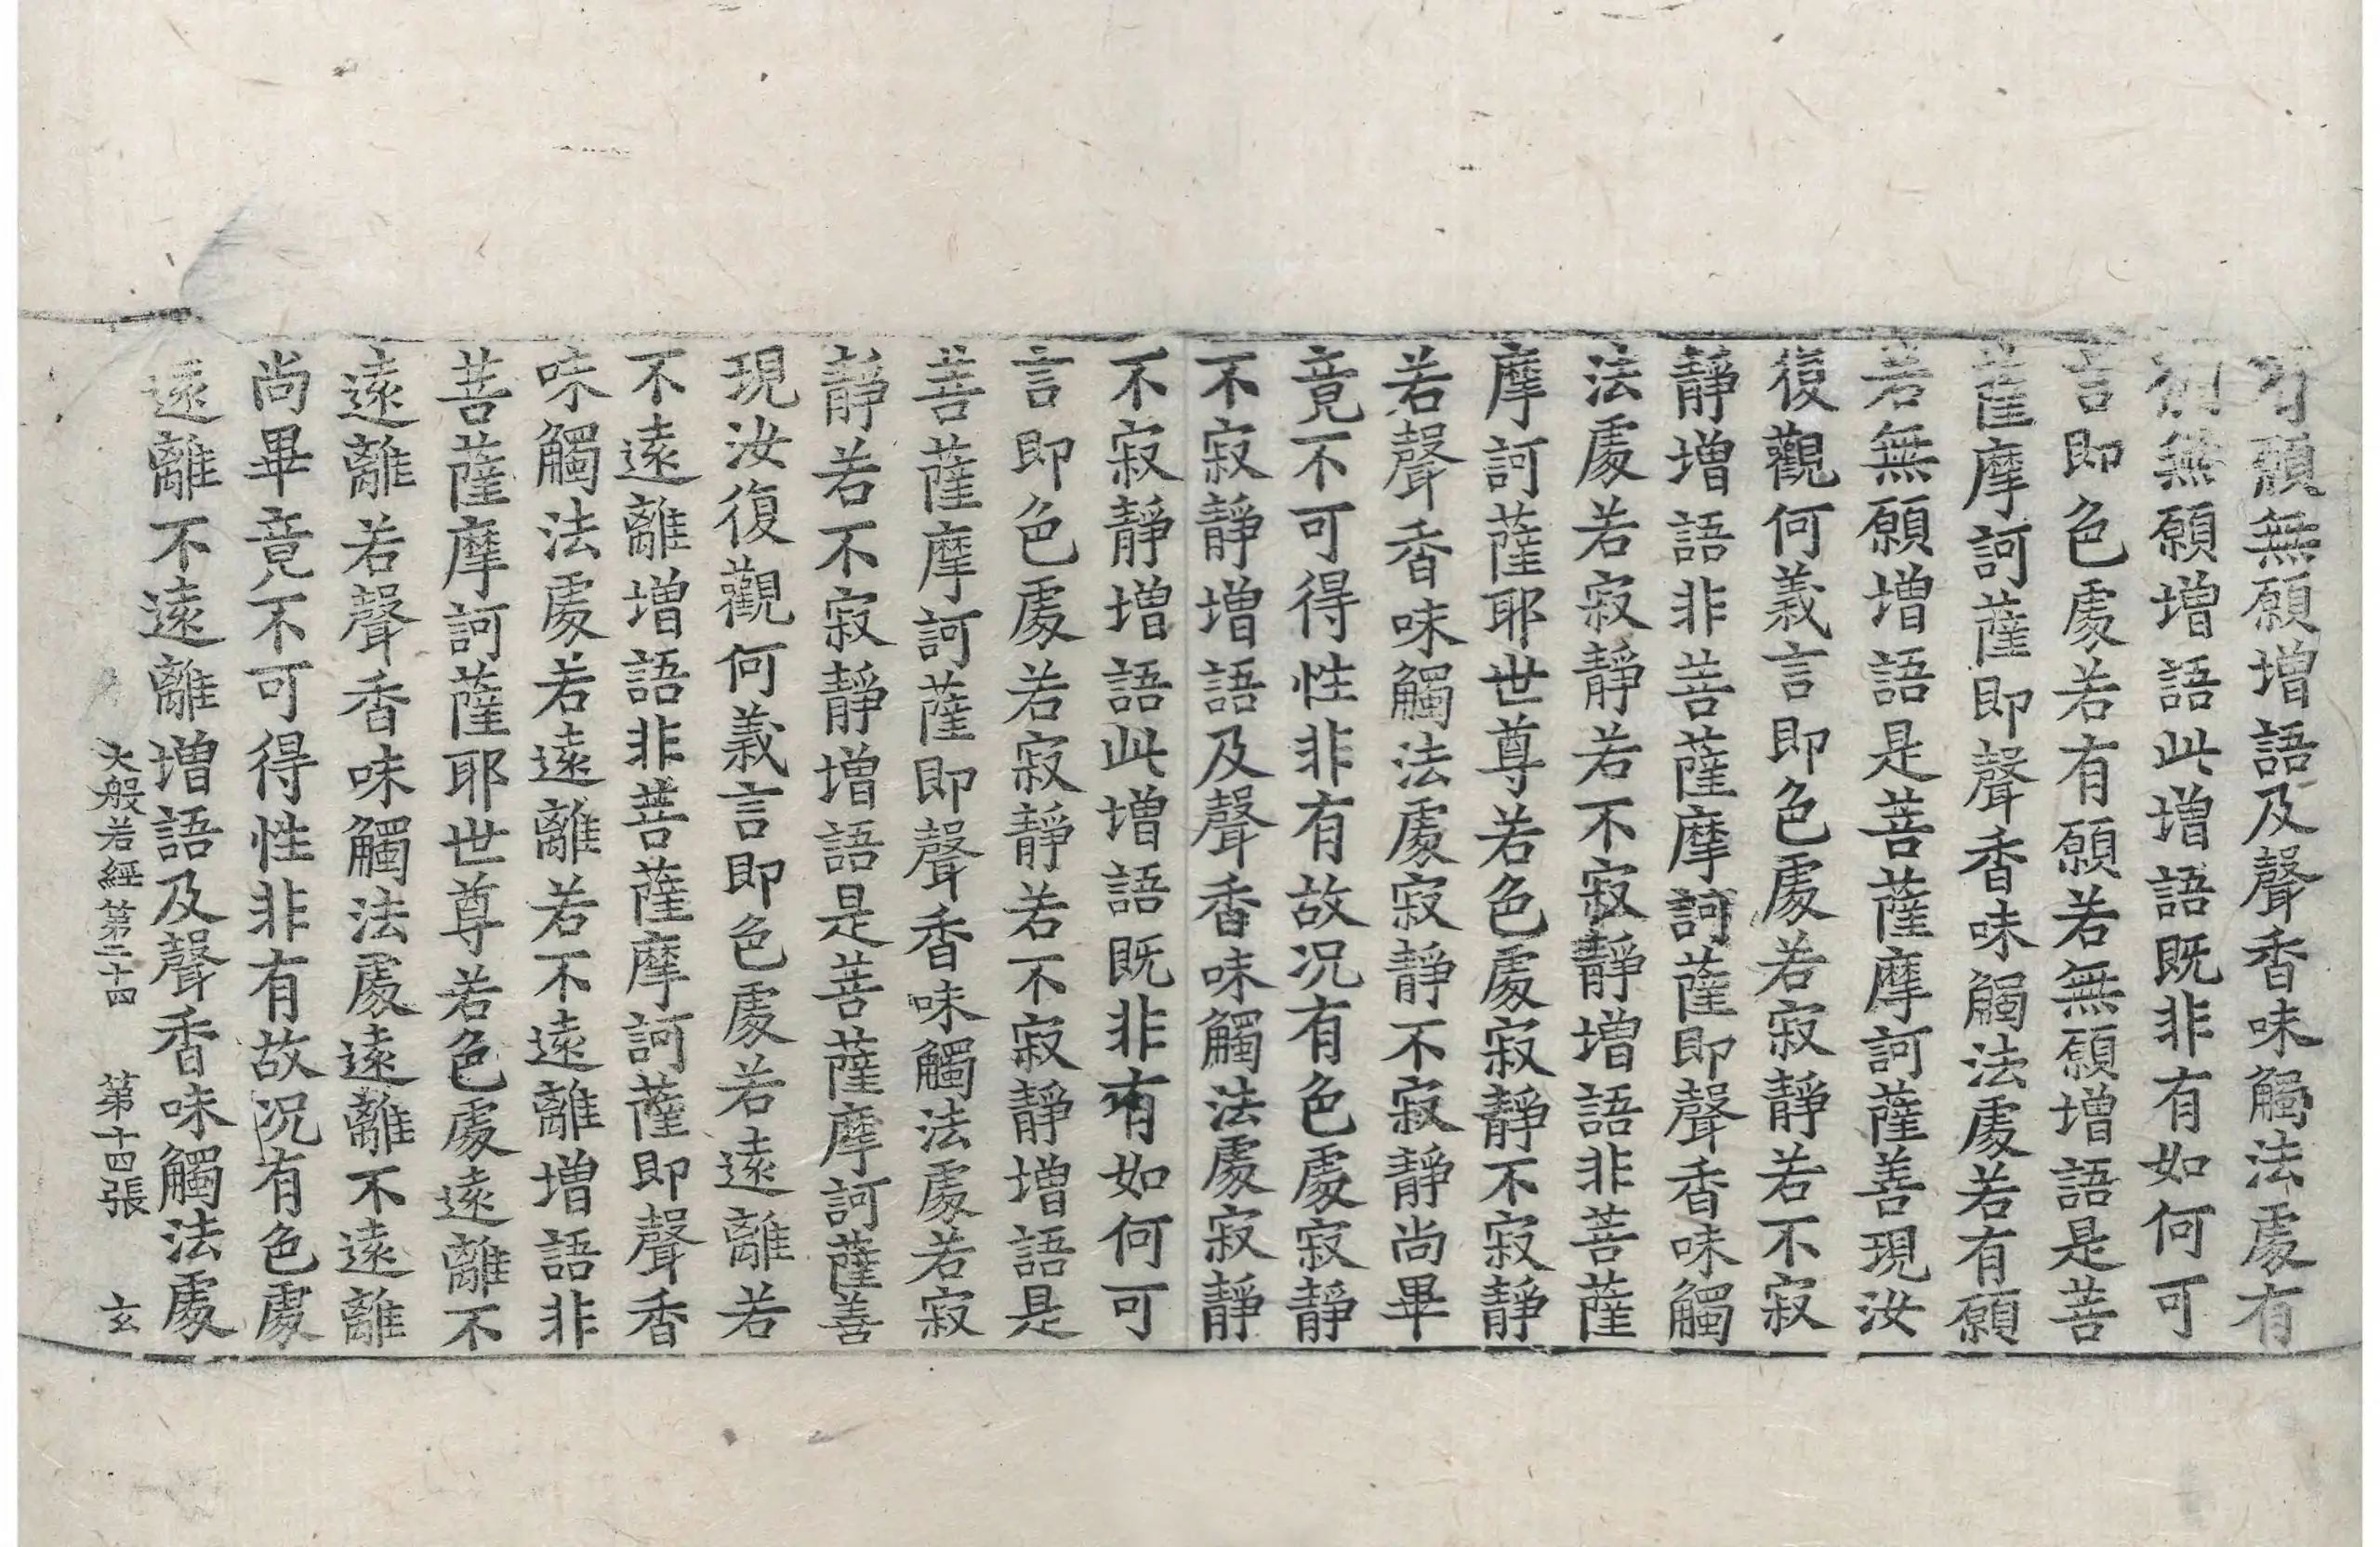 有願無願增語及聲香味觸法處有
願無願增語此增語既非有如何可
言即色處若有願若無願增語是菩
薩摩訶薩即聲香味觸法處若有願
若無願增語是菩薩摩訶薩善現汝
復觀何義言即色處若寂靜若不寂
靜增語非菩薩摩訶薩即聲香味觸
法處若寂靜若不寂靜增語非菩薩
摩訶薩耶世尊若色處寂靜不寂靜
若聲香味觸法處寂靜不寂靜尚畢
竟不可得性非有故况有色處寂靜
不寂靜增語及聲香味觸法處寂靜
不寂靜增語此增語既非有如何可
言即色處若寂靜若不寂靜增語是
菩薩摩訶薩即聲香味觸法處若寂
靜若不寂靜增語是菩薩摩訶薩善
現汝復觀何義言即色處若遠離若
不遠離增語非菩薩摩訶薩即聲香
味觸法處若遠離若不遠離增語非
菩薩摩訶薩耶世尊若色處遠離不
遠離若聲香味觸法處遠離不遠離
尚畢竟不可得性非有故况有色處
遠離不遠離增語及聲香味觸法處
大般若經第二十四 第十四張 玄